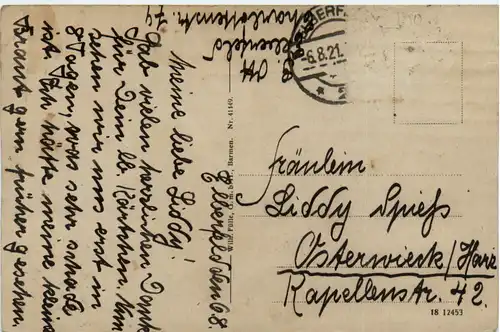 Elberfeld den 6.8.
Meine liebe Liddy!
Hab vielen herzlichen Dank
für Dein lb. Kärtchen. Nun
sehen wir uns erst in
8 Tagen, was sehr schade
ist. Ich hätte meine kleine
Braut gern früher gesehen.
Elberfeld
Charlottenstr. 79
-6.8.21.
Wilh. Fülle, G.m.b.H., Barmen. Nr. 41149.
Fräulein
Liddy Spieß
Osterwieck/Harz
Kapellenstr. 42.
18 12453